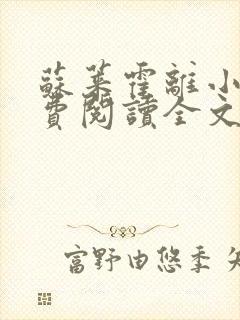 蘇茉霍離小
費閱讀全文
富野由悠季 矢